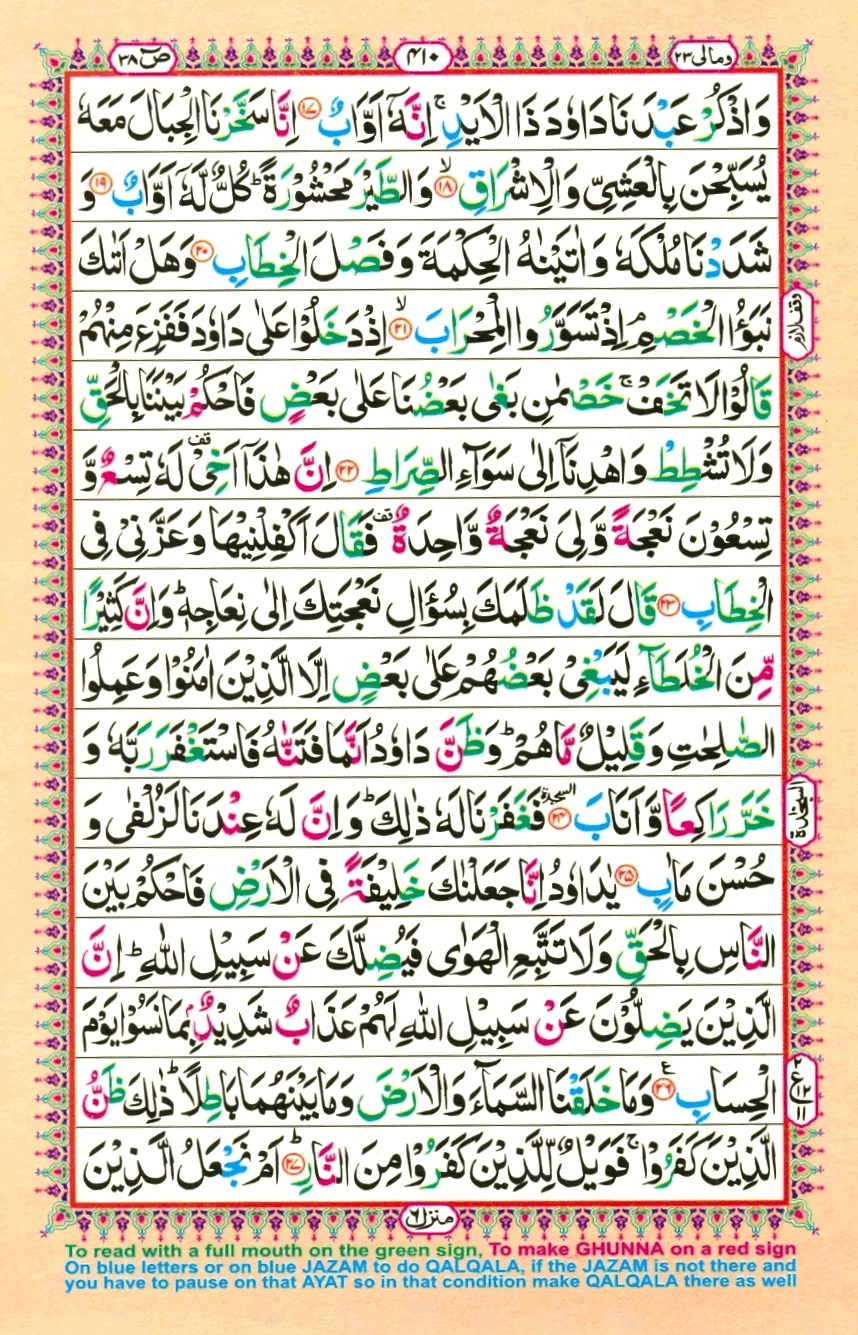 ومالی ٢٣
٤١٠
صٓ ٣٨
وَاذْكُرْ عَبْدَنَا دَاوٗدَ ذَا الْاَيْدِ ۚ اِنَّهٗۤ اَوَّابٌ ﴿١٧﴾ اِنَّا سَخَّرْنَا الْجِبَالَ مَعَهٗ
يُسَبِّحْنَ بِالْعَشِيِّ وَالْاِشْرَاقِ ۙ﴿١٨﴾ وَالطَّيْرَ مَحْشُوْرَةً ؕ كُلٌّ لَّهٗۤ اَوَّابٌ ﴿١٩﴾ وَ
شَدَدْنَا مُلْكَهٗ وَاٰتَيْنٰهُ الْحِكْمَةَ وَفَصْلَ الْخِطَابِ ﴿٢٠﴾ وَهَلْ اَتٰىكَ
نَبَؤُا الْخَصْمِ ۘ اِذْ تَسَوَّرُوا الْمِحْرَابَ ۙ﴿٢١﴾ اِذْ دَخَلُوْا عَلٰى دَاوٗدَ فَفَزِعَ مِنْهُمْ
وقف لازم
قَالُوْا لَا تَخَفْ ۚ خَصْمٰنِ بَغٰى بَعْضُنَا عَلٰى بَعْضٍ فَاحْكُمْ بَيْنَنَا بِالْحَقِّ
وَلَا تُشْطِطْ وَاهْدِنَاۤ اِلٰى سَوَآءِ الصِّرَاطِ ﴿٢٢﴾ اِنَّ هٰذَاۤ اَخِيْ قف لَهٗ تِسْعٌ وَّ
تِسْعُوْنَ نَعْجَةً وَّلِيَ نَعْجَةٌ وَّاحِدَةٌ قف فَقَالَ اَكْفِلْنِيْهَا وَعَزَّنِيْ فِي
الْخِطَابِ ﴿٢٣﴾ قَالَ لَقَدْ ظَلَمَكَ بِسُؤَالِ نَعْجَتِكَ اِلٰى نِعَاجِهٖ ؕ وَاِنَّ كَثِيْرًا
مِّنَ الْخُلَطَآءِ لَيَبْغِيْ بَعْضُهُمْ عَلٰى بَعْضٍ اِلَّا الَّذِيْنَ اٰمَنُوْا وَعَمِلُوا
الصّٰلِحٰتِ وَقَلِيْلٌ مَّا هُمْ ؕ وَظَنَّ دَاوٗدُ اَنَّمَا فَتَنّٰهُ فَاسْتَغْفَرَ رَبَّهٗ وَ
خَرَّ رَاكِعًا وَّاَنَابَ السجدة ﴿٢٤﴾ فَغَفَرْنَا لَهٗ ذٰلِكَ ؕ وَاِنَّ لَهٗ عِنْدَنَا لَزُلْفٰى وَ
السجدة
حُسْنَ مَاٰبٍ ﴿٢٥﴾ يٰدَاوٗدُ اِنَّا جَعَلْنٰكَ خَلِيْفَةً فِي الْاَرْضِ فَاحْكُمْ بَيْنَ
النَّاسِ بِالْحَقِّ وَلَا تَتَّبِعِ الْهَوٰى فَيُضِلَّكَ عَنْ سَبِيْلِ اللّٰهِ ؕ اِنَّ
الَّذِيْنَ يَضِلُّوْنَ عَنْ سَبِيْلِ اللّٰهِ لَهُمْ عَذَابٌ شَدِيْدٌۢ بِمَا نَسُوْا يَوْمَ
الْحِسَابِ ﴿٢٦﴾ ع وَمَا خَلَقْنَا السَّمَآءَ وَالْاَرْضَ وَمَا بَيْنَهُمَا بَاطِلًا ؕ ذٰلِكَ ظَنُّ
٢ ع ١٢ ١١
الَّذِيْنَ كَفَرُوْا ۚ فَوَيْلٌ لِّلَّذِيْنَ كَفَرُوْا مِنَ النَّارِ ؕ﴿٢٧﴾ اَمْ نَجْعَلُ الَّذِيْنَ
منزل ٦
To read with a full mouth on the green sign, To make GHUNNA on a red sign
On blue letters or on blue JAZAM to do QALQALA, if the JAZAM is not there and
you have to pause on that AYAT so in that condition make QALQALA there as well